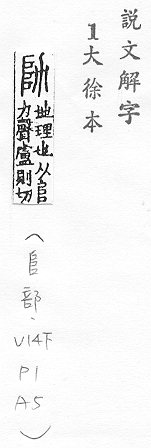 説文解字
1大徐本
阞 地理也从𨸏
力聲盧則切
(𨸏部、V14下P1A5)